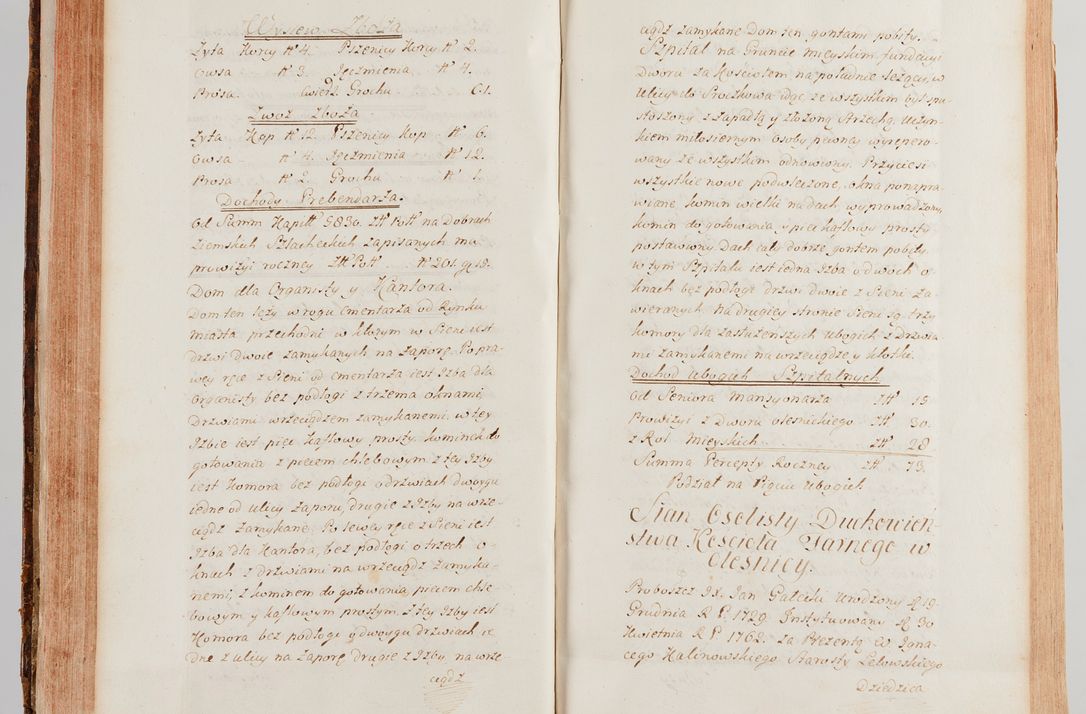 Wysiew Zboża
Żyta Korcy N 4. Pszenicy Korcy N 2.
Owsa N 3. Jęczmienia N 4.
Prosa Cwierś. Grochu C. 1.
Zwoź Zboża
Żyta Kop N 12. Pszenicy Kop N 6.
Owsa N 4. Jęczmienia N 12.
Prosa N 2. Grochu N 1.
Dochody Prebendarza.
Od Summ Kapitt 5830. Złł Poll na Dobrach
Ziemskich Szlacheckich zapisanych ma
prowizyi roczney Złł Poll N 201. g. 18.
Dom dla Organisty y Kantora.
Dom ten leży w rogu Cmentarza od Rynku
miasta przechodni w ktorym w Sieni iest
drzwi dwoie zamykanych na zaporę. Po pra-
wey ręce z Sieni od cmentarza iest Izba dla
Organisty bez podłogi z trzema oknami,
Drzwiami wrzeciądzem zamykanemi. w tey
Izbie iest piec kaflowy prosty. kominek do
gotowania z piecem chlebowym, z tey Izby
iest Komora bez podłogi o drzwiach dwoygu
iedne od ulicy zaporą, drugie z Izby na wrze-
ciądz zamykane. Po lewey ręce z Sieni iest
Izba dla Kantora, bez podłogi o trzech o-
knach z drzwiami na wrzeciądz zamyka-
nemi, z kominem do gotowania, piecem chle-
bowym y kaflowym prostym. z tey Izby iest
Komora bez podłogi o dwoygu drzwiach ie-
dne z ulicy na zaporę drugie z Izby na wrze-
ciądz
ciądz zamykane Dom ten gontami pobity.
Szpital na Gruncie mieyskim fundacyi
Dworu za Kosciołem na południe leżący, w
Ulicy do Kroczkowa idąc ze wszystkim był spu-
stoszony z zapadłą y złożoną strzechą. Uczyn-
kiem miłosiernym Osoby pewney wyrepero-
wany ze wszystkim odnowiony. Przyciesi
wszystkie nowe podwleczone, okna ponapra-
wiane komin wielki na dach wyprowadzony,
komin do gotowania y piec kaflowy prosty
postawiony Dach cały dobrze gontem pobity.
w tym Szpitalu iest iedna Izba o dwoch o-
knach bez podłogi drzwi Dwoie z Sieni za-
wieranych na drugiey stronie Sieni są trzy
komory dla zasłużeńszych Ubogich z Drzwia-
mi zamykanemi na wrzeciądze y kłotki.
Dochod Ubogich Szpitalnych
Od Seniora Mansyonarza Złł 15.
Prowizyi z Dworu olesnickiego Złł 30.
z Rol Mieyskich Złł 28
Summa Percepty Roczney Złł 73.
Podział na Pięciu Ubogich
Stan Osobisty Duchowień-
stwa Koscioła Farnego w
Olesnicy.
Proboszcz JX. Jan Gałecki Urodzony d. 19.
Grudnia R. P. 1729. Instytuowany d. 30
Kwietnia R. P. 1762. za Prezentą W. Igna-
cego Kalinowskiego Starosty Letowskiego
Dziedzica